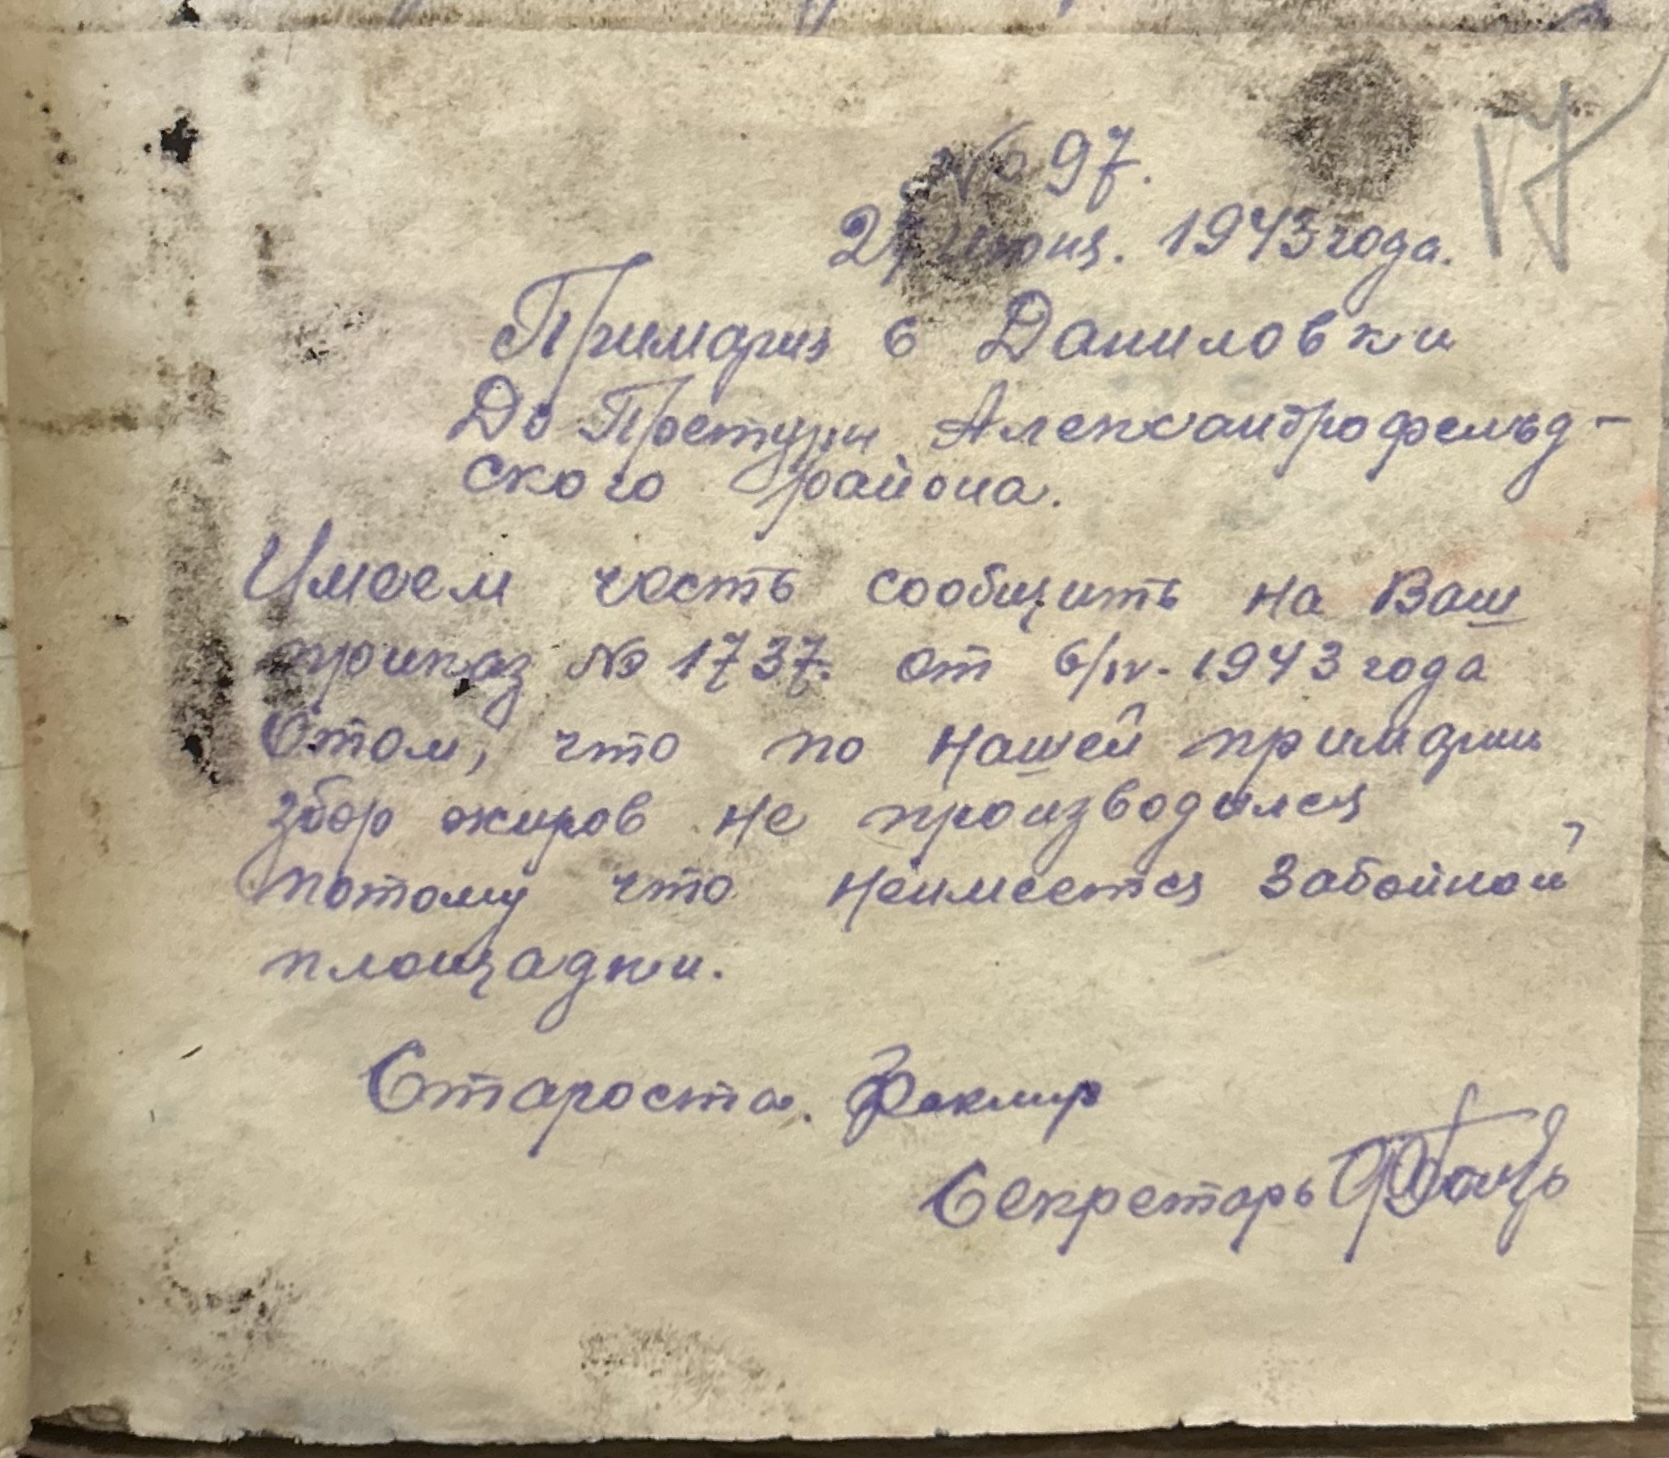 17
№ 97.
июня. 1943 года.
Примария с Даниловки
До Претуры Александрофельд-
ского района.
Имеем честь сообщить на Ваш
приказ № 1737. от 6/IV. 1943 года
Отом, что по нашей примарии
збор жиров не производился
потому что неимеется забойной
площадки.
Староста.
Секретарь